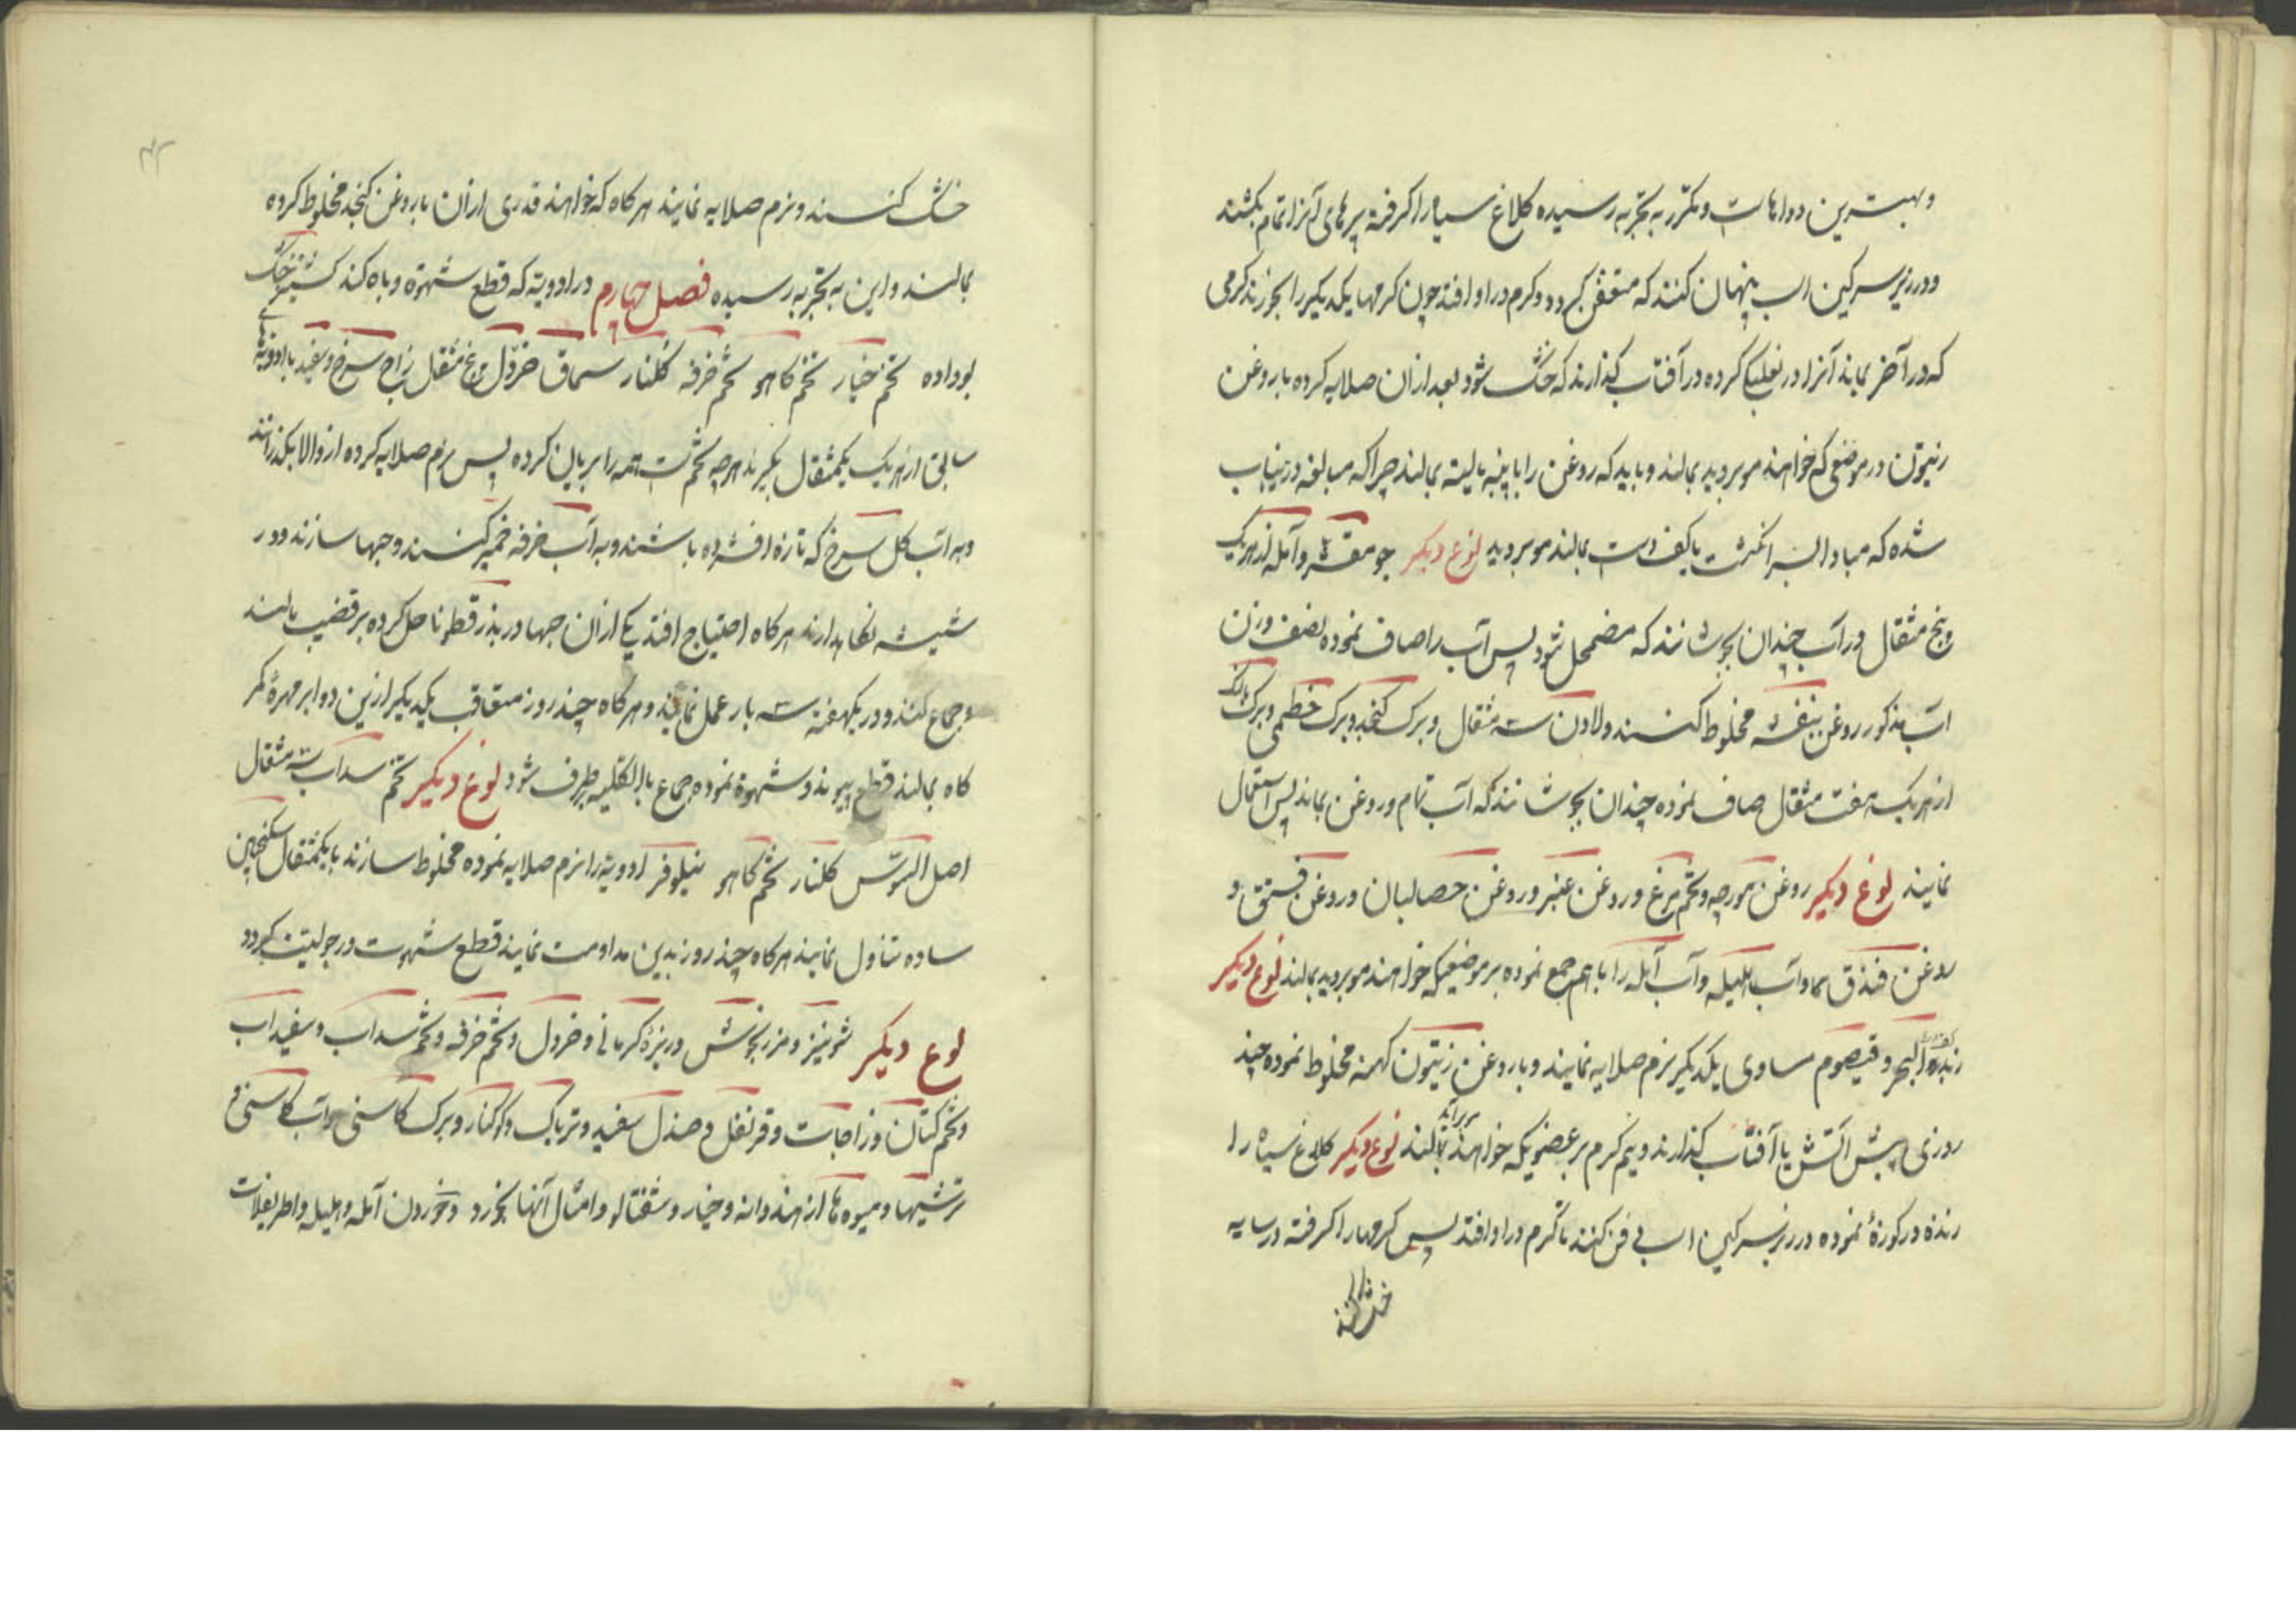 و بهترین دواهاست و مکرر به تجربه رسیده کلاغ سیاه را گرفته پرهای آنرا تمام بکشند
و در زیر سرکین اسب پنهان کنند که متعفن کردد و کرم در او افتد چون کرمها یکدیکر را بخورند کرمی
که در آخر بماند آنرا در کرده در آفتاب کذارند که خشک شود بعد ازان صلایه کرده با روغن
زیتون در موضعی که خواهند مو بروید بمالند و باید که روغن را با پنبه بمالند چرا که مبالغه درینباب
شده که مبادا از سر انکشت یا کف دست بمالند مو بروید نوع دیکر جو مقشر و آمله از هریک
پنج مثقال در آب چندان بجوشانند که مضمحل شود پس آب را صاف نموده نصف وزن
آب مذکور روغن بنفشه مخلوط کنند و لادن سه مثقال و برک کنجد و برک خطمی و برک
از هریک هفت مثقال صاف نموده چندان بجوشانند که آب تمام و روغن بماند پس استعمال
نمایند نوع دیکر روغن مورچه و تخم مرغ و روغن عنبر و روغن حصالبان و روغن فستق و
روغن فندق و آب هلیله و آب آمله را با هم جمع نموده بر موضعیکه خواهند مو بروید بمالند نوع دیکر
زبد البحر و قیصوم مساوی یکدیکر نرم صلایه نمایند و با روغن زیتون کهنه مخلوط نموده چند
روزی پیش آتش یا آفتاب کذارند و نیم کرم بر عضویکه خواهند بمالند نوع دیکر کلاغ سیاه را
زنده در کوزهٔ نموده در زیر سرکین اسب دفن کنند تا کرم در او افتد پس کرمها را کرفته در سایه
خشک کنند
خشک کنند و نرم صلایه نمایند هرکاه که خواهند قدری ازان با روغن کنجد مخلوط کرده
بمالند و این به تجربه رسیده فصل چهارم در ادویه که قطع شهوة و باه کند کشنیز خشک
بوداده تخم خیار تخم کاهو تخم خرفه کلنار سماق خردل مثقال زاج سرخ و سفید با ادویهٔ
سابق از هریک یکمثقال بکیرند هرچه تخمست همه را بریان کرده پس نرم صلایه کرده از والا بکذرانند
و به آب کل سرخ که تازه افشرده باشند و به آب خرفه خمیر کنند و حبها سازند و در
شیشه نکاهدارند هرکاه احتیاج افتد یکی ازان حبها در بذر قطونا حل کرده بر قضیب مالند
و جماع کنند و در یکهفته سه بار عمل نمایند و هرکاه چند روز متعاقب یکدیکر ازین دوا بر مهرهٔ کمر
کاه بمالند قطع پیوند و شهوة نموده جماع بالکلیه برطرف شود نوع دیکر تخم سداب سه مثقال
اصل السوس کلنار تخم کاهو نیلوفر ادویه را نرم صلایه نموده مخلوط سازند با یکمثقال سکنجبین
ساده تناول نمایند هرکاه چند روز بدین مداومت نمایند قطع شهوت و رجولیت کردد
نوع دیکر شونیز و مرزنجوش و زیرهٔ کرمانی و خردل و تخم خرفه و تخم سداب و سفیداب
و تخم کتان و زاجات و قرنفل و صندل سفید و تریاک و کوکنار و برک کاسنی و آب کاسنی و
ترشیها و میوه ها از هندوانه و خیار و شفتالو و امثال آنها بخورد و خوردن آمله و هلیله و اطریفلات